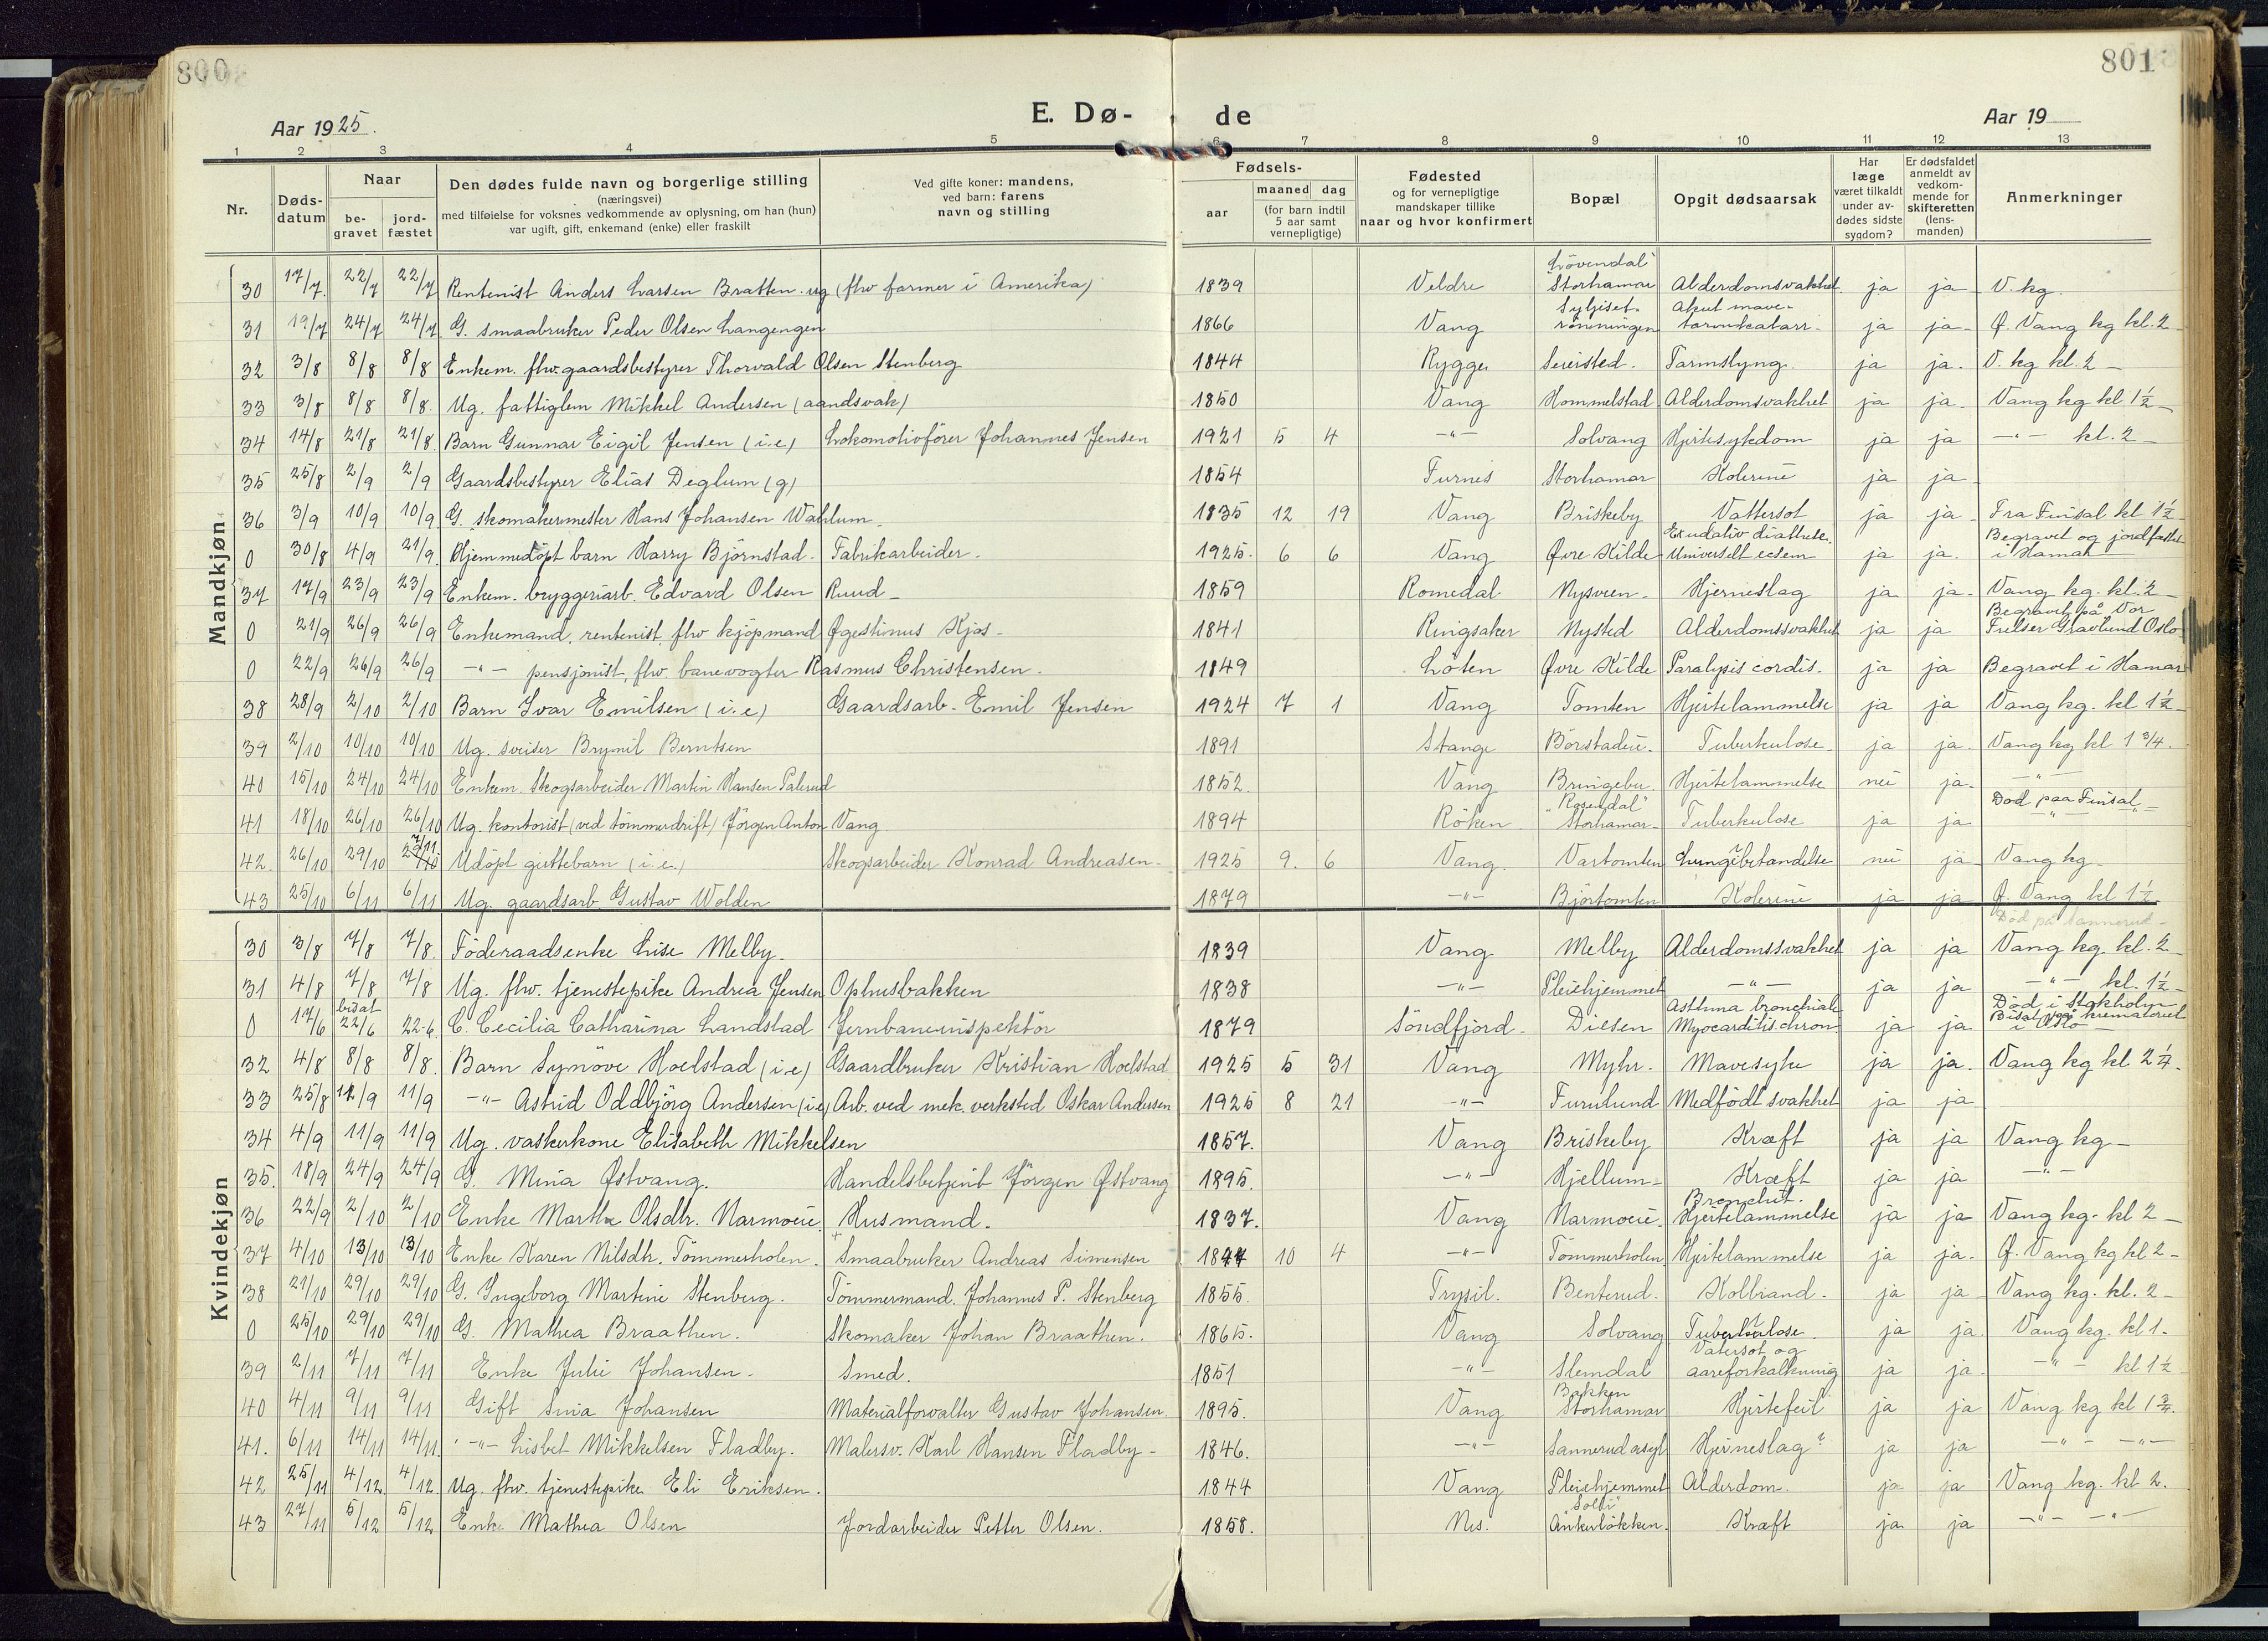 800
801
Aar 1925.
E. Dø-
de
Aar 19
1 2 3 4 5 6 7 8 9 10 11 12 13
Nr.
Døds-
datum
Naar
be-
gravet
jord-
fæstet
Den dødes fulde navn og borgerlige stilling
(næringsvei)
med tilføielse for voksnes vedkommende av oplysning, om han (hun)
var ugift, gift, enkemand (enke) eller fraskilt
Ved gifte koner: mandens,
ved barn: farens
navn og stilling
Fødsels-
aar
maaned dag
(for barn indtil
5 aar samt
vernepligtige)
Fødested
og for vernepligtige
mandskaper tillike
naar og hvor konfirmert
Bopæl
Opgit dødsaarsak
Har
læge
været tilkaldt
under av-
dødes sidste
sygdom?
Er dødsfaldet
anmeldt av
vedkom-
mende for
skifteretten
(lens-
manden)
Anmerkninger
Mandkjøn
30 17/7. 22/7 22/7 Rentenist Anders Larsen Bratten. ug (fhv farmer i Amerika) 1839 Veldre "Lövendal" Storhamar Alderdomsvakhet. ja ja V. kg.
31 19/7 24/7 24/7. G. smaabruker Peder Olsen Langengen 1866 Vang Syljiset-rönningen Akut mave-tarmkatarr. ja ja Ø. Vang kg kl. 2
32 3/8 8/8 8/8 Enkem. fhv. gaardsbestyrer Thorvald Olsen Stenberg 1844 Rygge Seiersted. Tarmslyng. ja ja. V. kg kl. 2
33 3/8 8/8 8/8. Ug. fattiglem Mikkel Andersen (aandsvak) 1850 Vang Hommelstad Alderdomsvakhet ja ja Vang kg kl 1½
34 14/8 21/8 21/8. Barn Gunnar Eigil Jensen (i.e) Lokomotivförer Johannes Jensen 1921 5 4 -"- Solvang Hjertesykdom ja ja -"- kl. 2
35 25/8 2/9 2/9 Gaardsbestyrer Elias Deglum (g) 1854 Furnes Storhamar Kolerine ja ja
36 3/9 10/9 10/9 G. skomakermester Hans Johansen Wahlum. 1835 12 19 Vang Briskeby Vattersot ja ja Fra Finsal kl 1½
0 30/8 4/9 21/9. Hjemmedöpt barn Harry Björnstad. Fabrikarbeider. 1925. 6 6 Vang Øvre Kilde Exudativ diathese. Universelt ecsem ja ja. Begravet og jordfæstet i Hamar
37 17/9 23/9 23/9 Enkem. bryggeriarb. Edvard Olsen Ruud 1859 Romedal Nysveen Hjerneslag ja ja Vang kg. kl. 2
0 21/9 26/9 26/9 Enkemand, rentenist fhv kjöpmand Øgestinus Kjos 1841 Ringsaker Nysted Alderdomssvakhet ja ja Begravet på Vor Frelser Gravlund Oslo
0 22/9 26/9 26/9 -"- pensjonist, fhv. banevogter Rasmus Christensen. 1849 Löten Øvre Kilde Paralysis cordis. ja ja Begravet i Hamar
38 28/9 2/10 2/10 Barn Ivar Emilsen (i.e) Gaardsarb. Emil Jensen 1924 7 1 Vang Tomten Hjertelammelse ja ja Vang kg. kl 1½
39 2/10 10/10 10/10 Ug. sveiser Brynil Berntsen 1891 Stange Börstadeie. Tuberkulose ja ja. Vang kg kl 1¾.
40 15/10 24/10 24/10 Enkem. Skogsarbeider Martin Hansen Palerud 1852. Vang Bringebu. Hjertelammelse nei ja. -"-
41 18/10 26/10 26/10 Ug. kontorist (ved tömmerdrift) Jörgen Anton Vang 1894 Röken "Rosendal" Storhamar Tuberkulose ja ja Död paa Finsal -"-
42. 26/10 29/10 7/11 29/10 Udöpt guttebarn (i.e.) Skogsarbeider Konrad Andreasen 1925 9. 6 Vang. Vartomten Lungebetændelse nei ja Vang kg
43 25/10 6/11 6/11 Ug. gaardsarb. Gustav Wolden 1879 -"- Björtomten Kolerine ja ja Ø. Vang kl 1½
Kvindekjøn
30 3/8 7/8 7/8. Föderaadsenke Lise Melby. 1839 Vang Melby Alderdomssvakhet ja ja Vang kg. kl. 2
31 4/8 7/8 7/8 Ug. fhv. tjenestepike Andrea Jensen Ophusbakken 1838 -"- Pleiehjemmet -"- ja ja -"- kl. 1½
0 17/6 bisat 22/6 22-6. C. Cecilia Catharina Landstad Jernbaneinspektör 1879 Söndfjord Diesen Asthma bronchiale Myocarditis chron ja ja Död i Stokholm Bisat på krematoriet i Oslo
32 4/8 8/8 8/8. Barn Synöve Hoelstad (i e) Gaardbruker Kristian Hoelstad 1925 5 31 Vang Myhr. Mavesyke ja ja. Vang kg kl 2¼.
33 25/8 11/9 11/9 -"- Astrid Oddbjörg Andersen (i.e) Arb. ved mek. verksted Oskar Andersen 1925 8 21 -"- Furulund Medfödt svakhet ja ja
34 4/9 11/9 11/9 Ug. vaskerkone Elisabeth Mikkelsen 1857. Vang Briskeby Kræft ja ja Vang kg
35. 18/9 24/9 24/9 G. Mina Østvang. Handelsbetjent Jörgen Østvang 1895. -"- Hjellum Kræft ja ja -"-
36 22/9 2/10 2/10 Enke Marthe Olsdtr. Narmoeie. Husmand. 1837. Vang Narmoeie. Bronchit. Hjertelammelse ja ja Vang kg. kl 2
37 4/10 13/10 13/10 Enke Karen Nilsdtr. Tömmerholen. Smaabruker Andreas Simensen 1844 10 4 -"- Tömmerholen Hjertelammelse ja ja. Ø. Vang kg kl 2
38 21/10 29/10 29/10 G. Ingeborg Martine Stenberg. Tömmermand. Johannes P. Stenberg 1855. Trysil. Benterud. Kolbrand. ja ja Vang kg. kl. 2
0 25/10 29/10 29/10 G. Mathea Braathen. Skomaker Johan Braathen. 1865. Vang Solvang Tuberkulose. ja ja. Vang kg. kl 1.
39 2/11 7/11 7/11 Enke Julie Johansen. Smed. 1851 -"- Slemdal Vatersot og aareforkalkning ja ja. -"- kl 1½
40 4/11 9/11 9/11 Gift Snia Johansen Materialforvalter Gustav Johansen. 1895. Vang Bakken Storhamar Hjertefeil ja ja Vang kg kl 1¾.
41. 6/11 14/11 14/11. -"- Lisbet Mikkelsen Fladby. Malersv. Karl Hansen Fladby 1846. -"- Sannerud asyl Hjerneslag? ja ja -"- -"-
42 25/11 4/12 4/12. Ug. fhv. tjenestepike Eli Eriksen. 1844 Vang Pleiehjemmet Alderdom. ja ja Vang kg. kl 2.
43 27/11 5/12 5/12 Enke Mathea Olsen Jordarbeider Petter Olsen. 1858. Nes. "Solli" Ankerlökken. Kræft ja ja -"- -"-